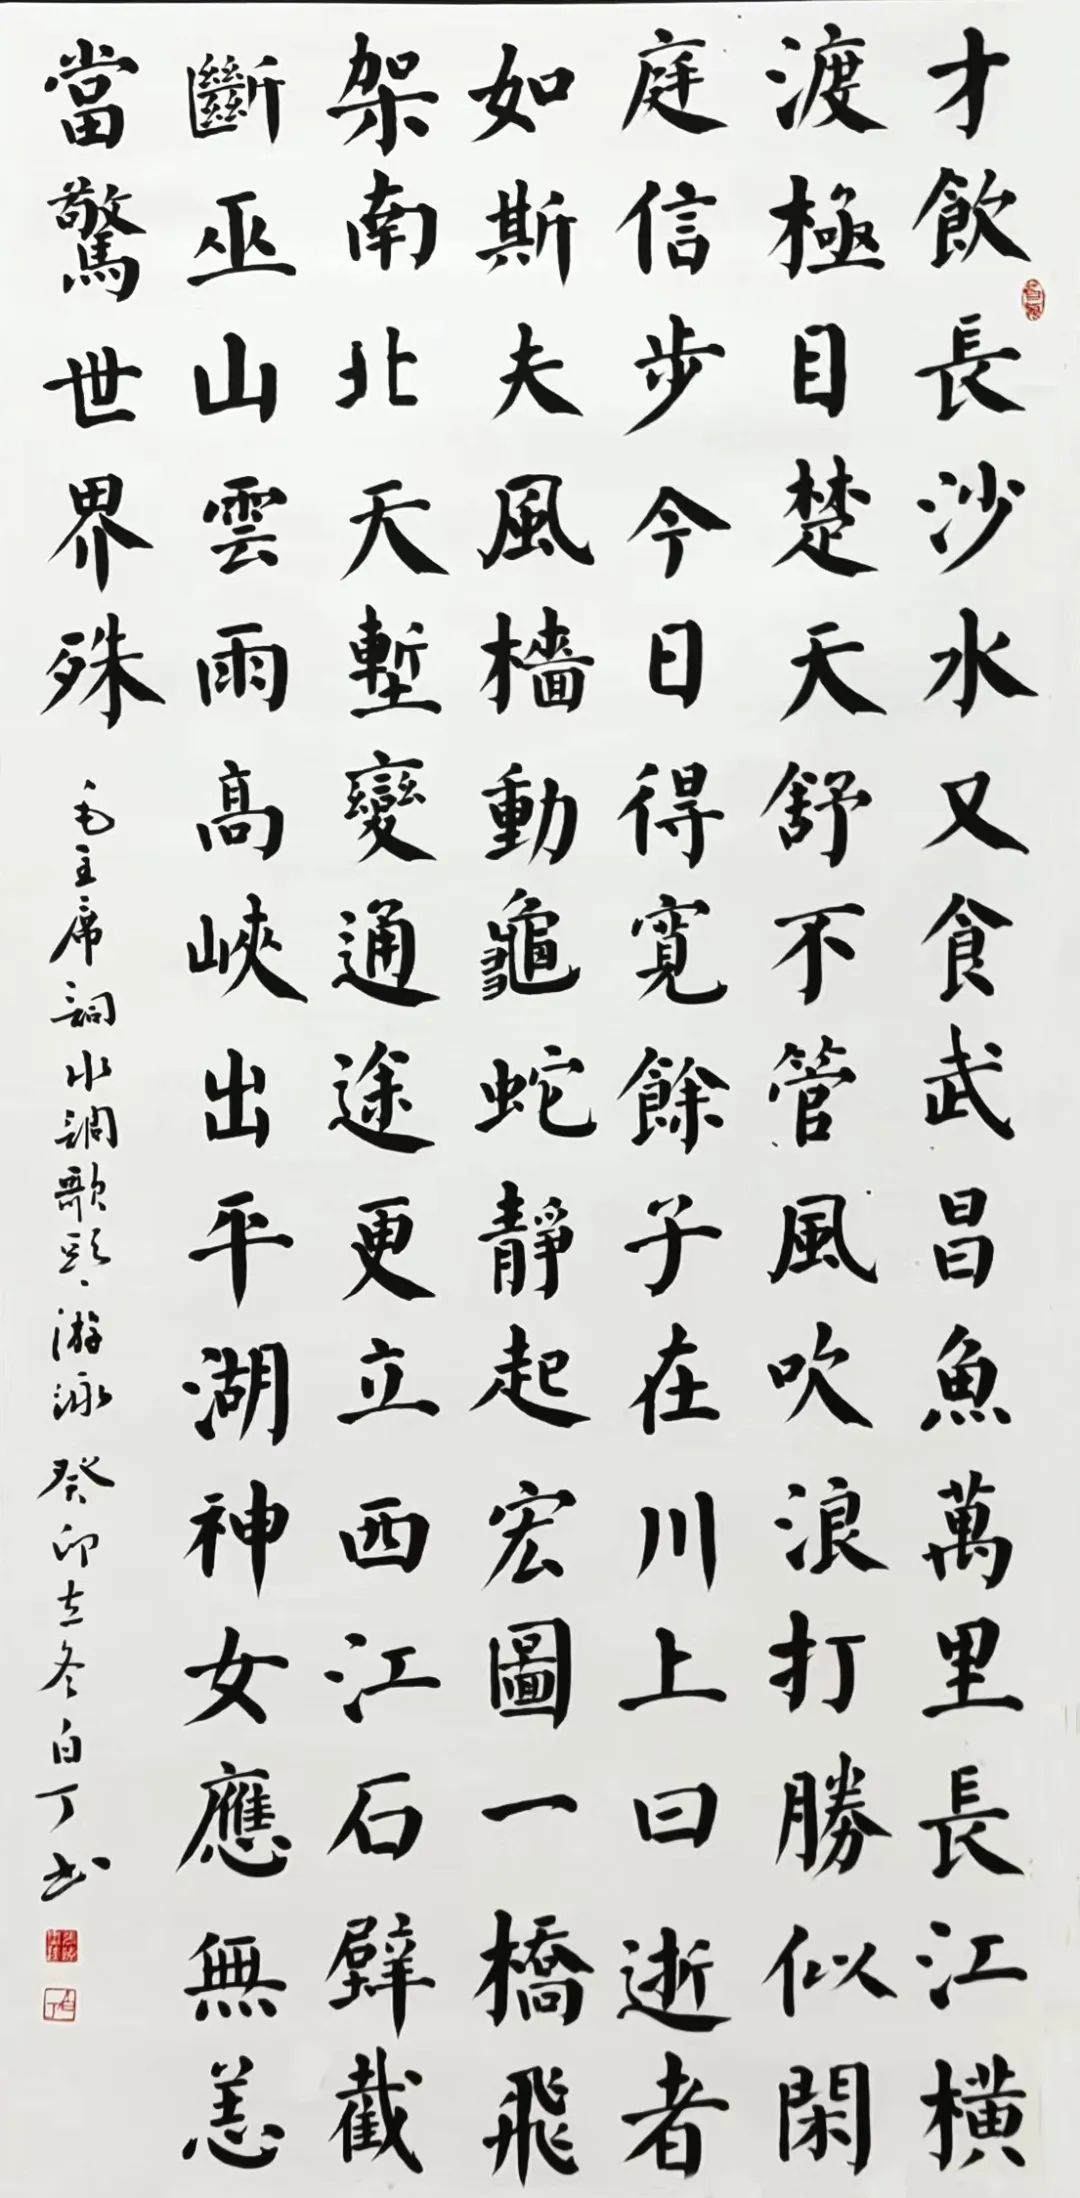 才飲長沙水又食武昌魚萬里長江橫
渡極目楚天舒不管風吹浪打勝似閑
庭信步今日得寬餘子在川上曰逝者
如斯夫風檣動龜蛇靜起宏圖一橋飛
架南北天塹變通途更立西江石壁截
斷巫山雲雨高峽出平湖神女應無恙
當驚世界殊
毛主席詞水調歌頭游泳癸卯立冬白丁书
白丁